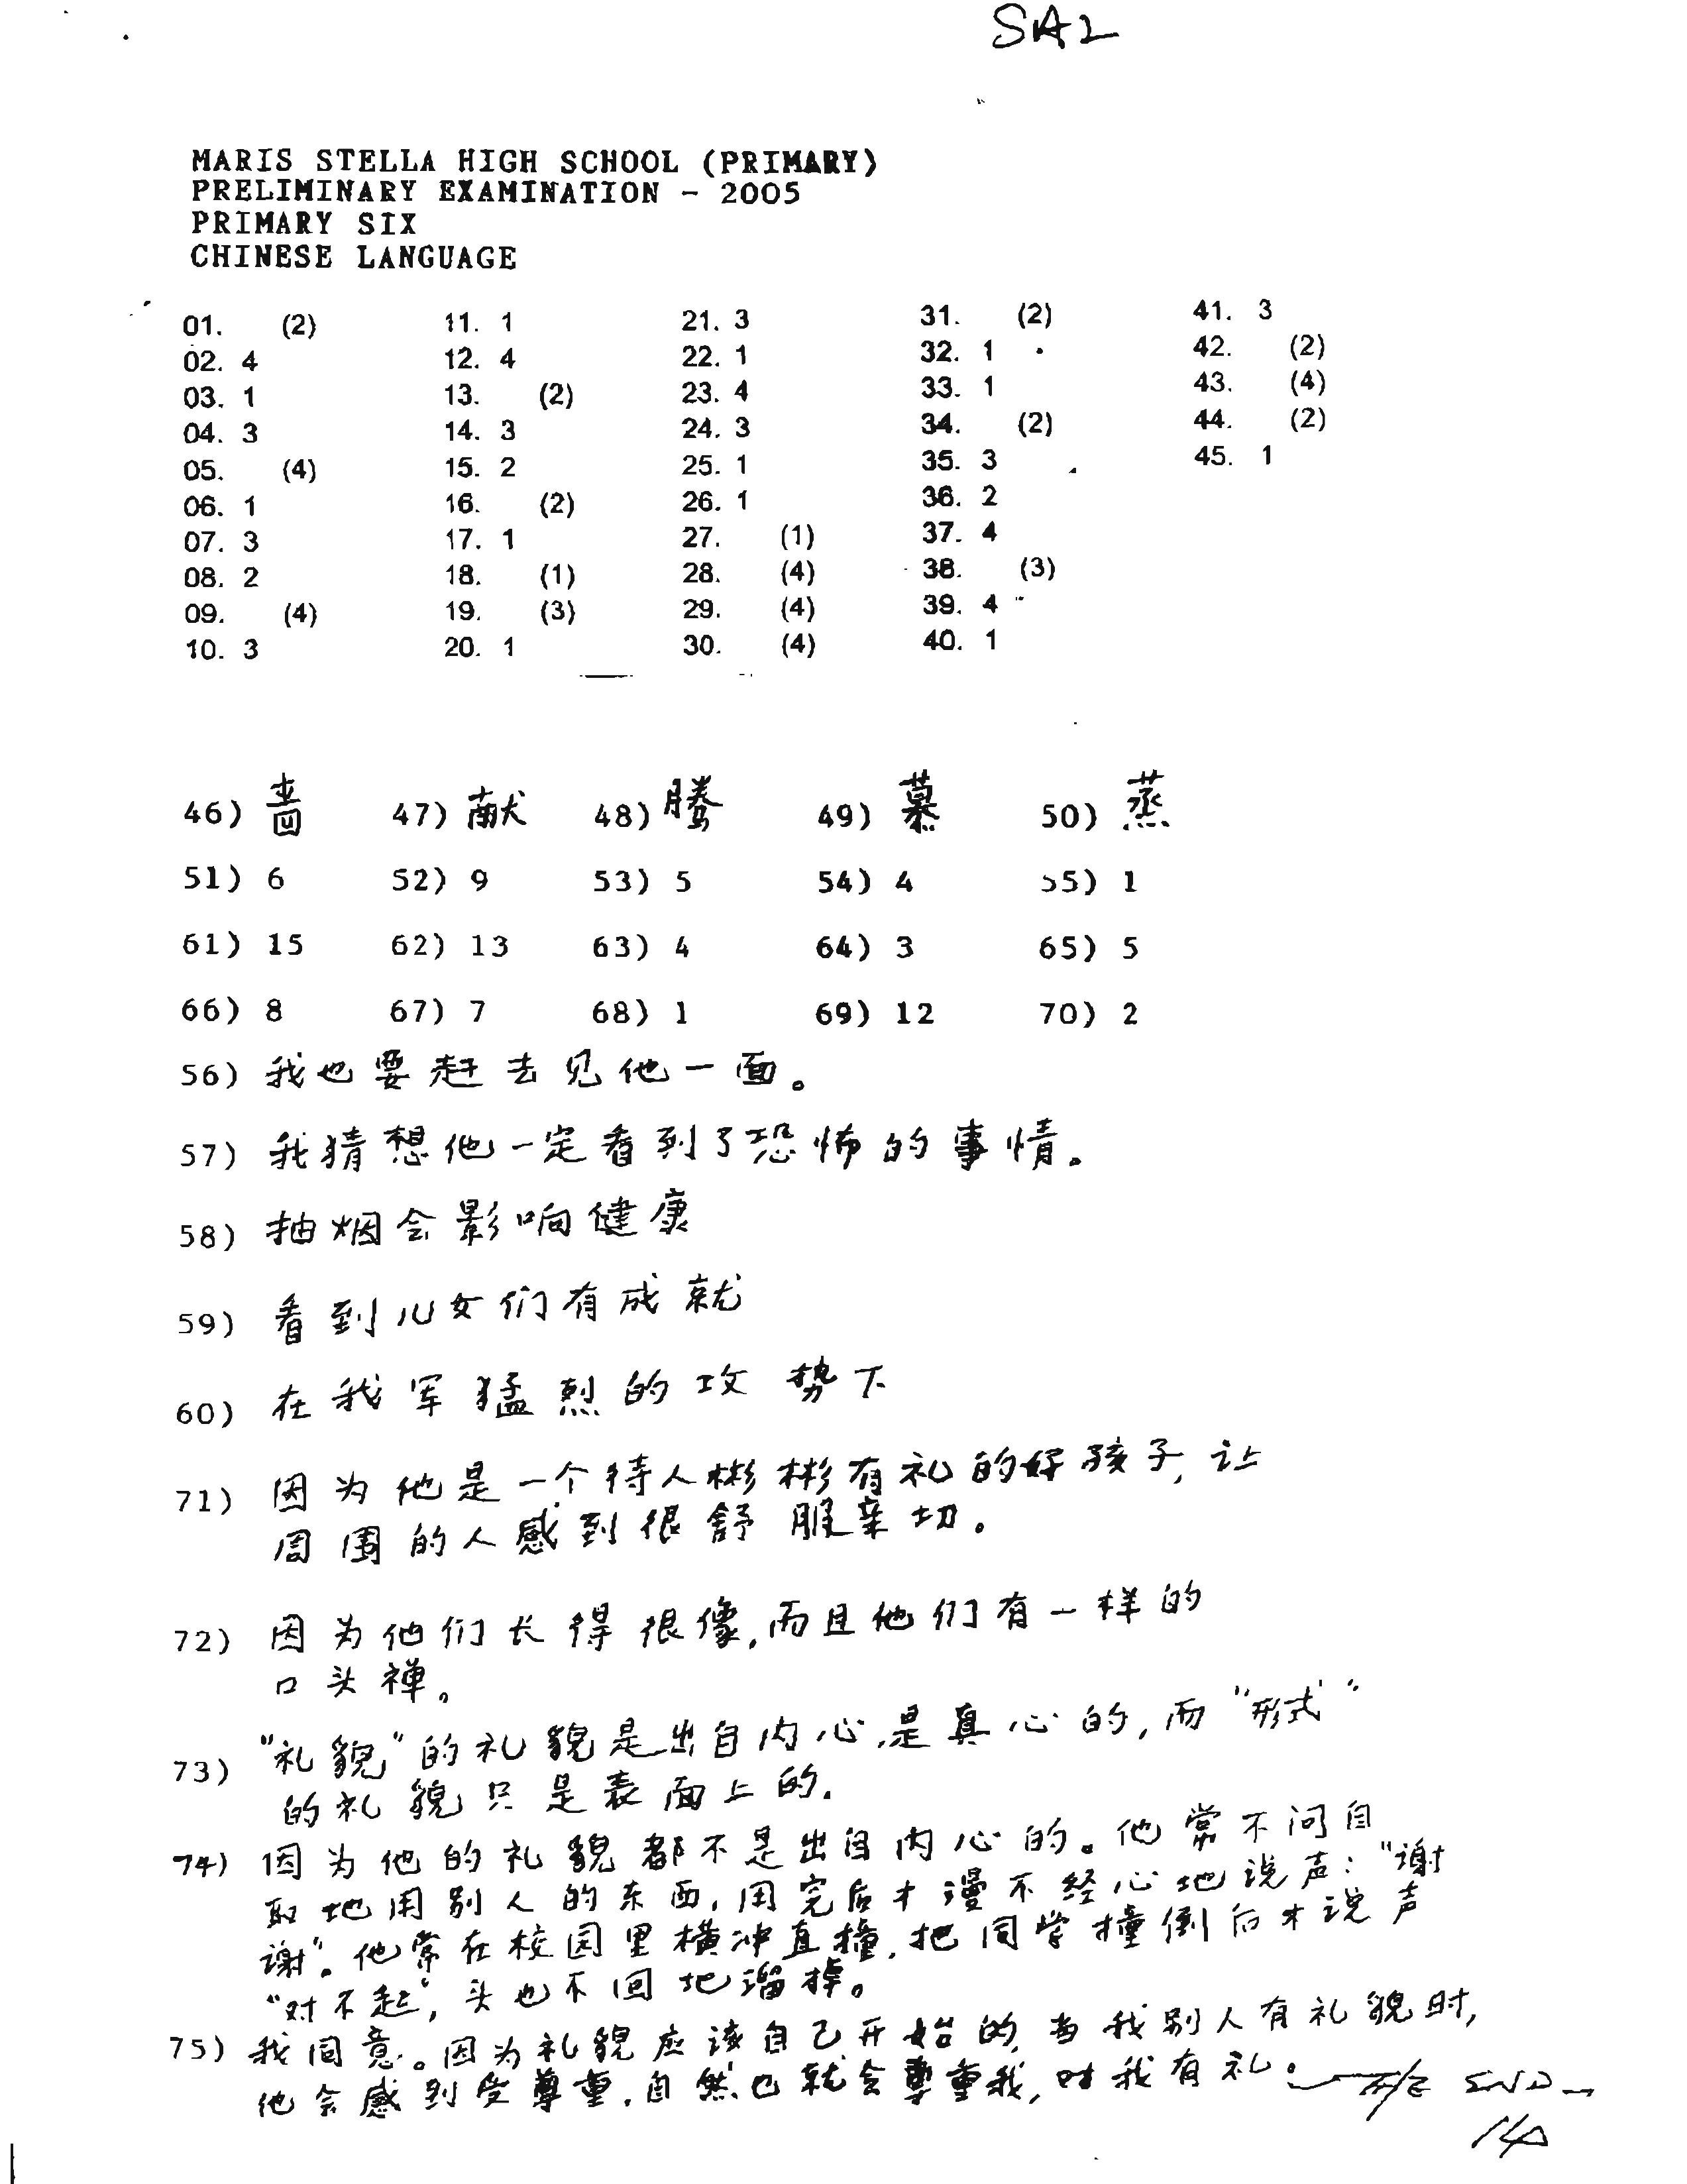 SA2
MARIS STELLA HIGH SCHOOL (PRIMARY)
PRELIMINARY EXAMINATION - 2005
PRIMARY SIX
CHINESE LANGUAGE
01. (2) 11. 1 21. 3 31. (2) 41. 3
02. 4 12. 4 22. 1 32. 1 42. (2)
03. 1 13. (2) 23. 4 33. 1 43. (4)
04. 3 14. 3 24. 3 34. (2) 44. (2)
05. (4) 15. 2 25. 1 35. 3 45. 1
06. 1 16. (2) 26. 1 36. 2
07. 3 17. 1 27. (1) 37. 4
08. 2 18. (1) 28. (4) 38. (3)
09. (4) 19. (3) 29. (4) 39. 4
10. 3 20. 1 30. (4) 40. 1
46) 啬 47) 献 48) 腾 49) 慕 50) 蒸
51) 6 52) 9 53) 5 54) 4 55) 1
61) 15 62) 13 63) 4 64) 3 65) 5
66) 8 67) 7 68) 1 69) 12 70) 2
56) 我也要赶去见他一面。
57) 我猜想他一定看到了恐怖的事情。
58) 抽烟会影响健康
59) 看到儿女们有成就
60) 在我军猛烈的攻势下
71) 因为他是一个待人彬彬有礼的好孩子，让
周围的人感到很舒服亲切。
72) 因为他们长得很像，而且他们有一样的
口头禅。
73) "礼貌"的礼貌是出自内心，是真心的，而"形式"
的礼貌只是表面上的.
74) 因为他的礼貌都不是出自内心的。他常不问自
取地用别人的东西，用完后才漫不经心地说声："谢
谢"。他常在校园里横冲直撞，把同学撞倒后才说声
"对不起"，头也不回地溜掉。
75) 我同意。因为礼貌应该自己开始的，当我别人有礼貌时，
他会感到受尊重，自然也就会尊重我，对我有礼。
END